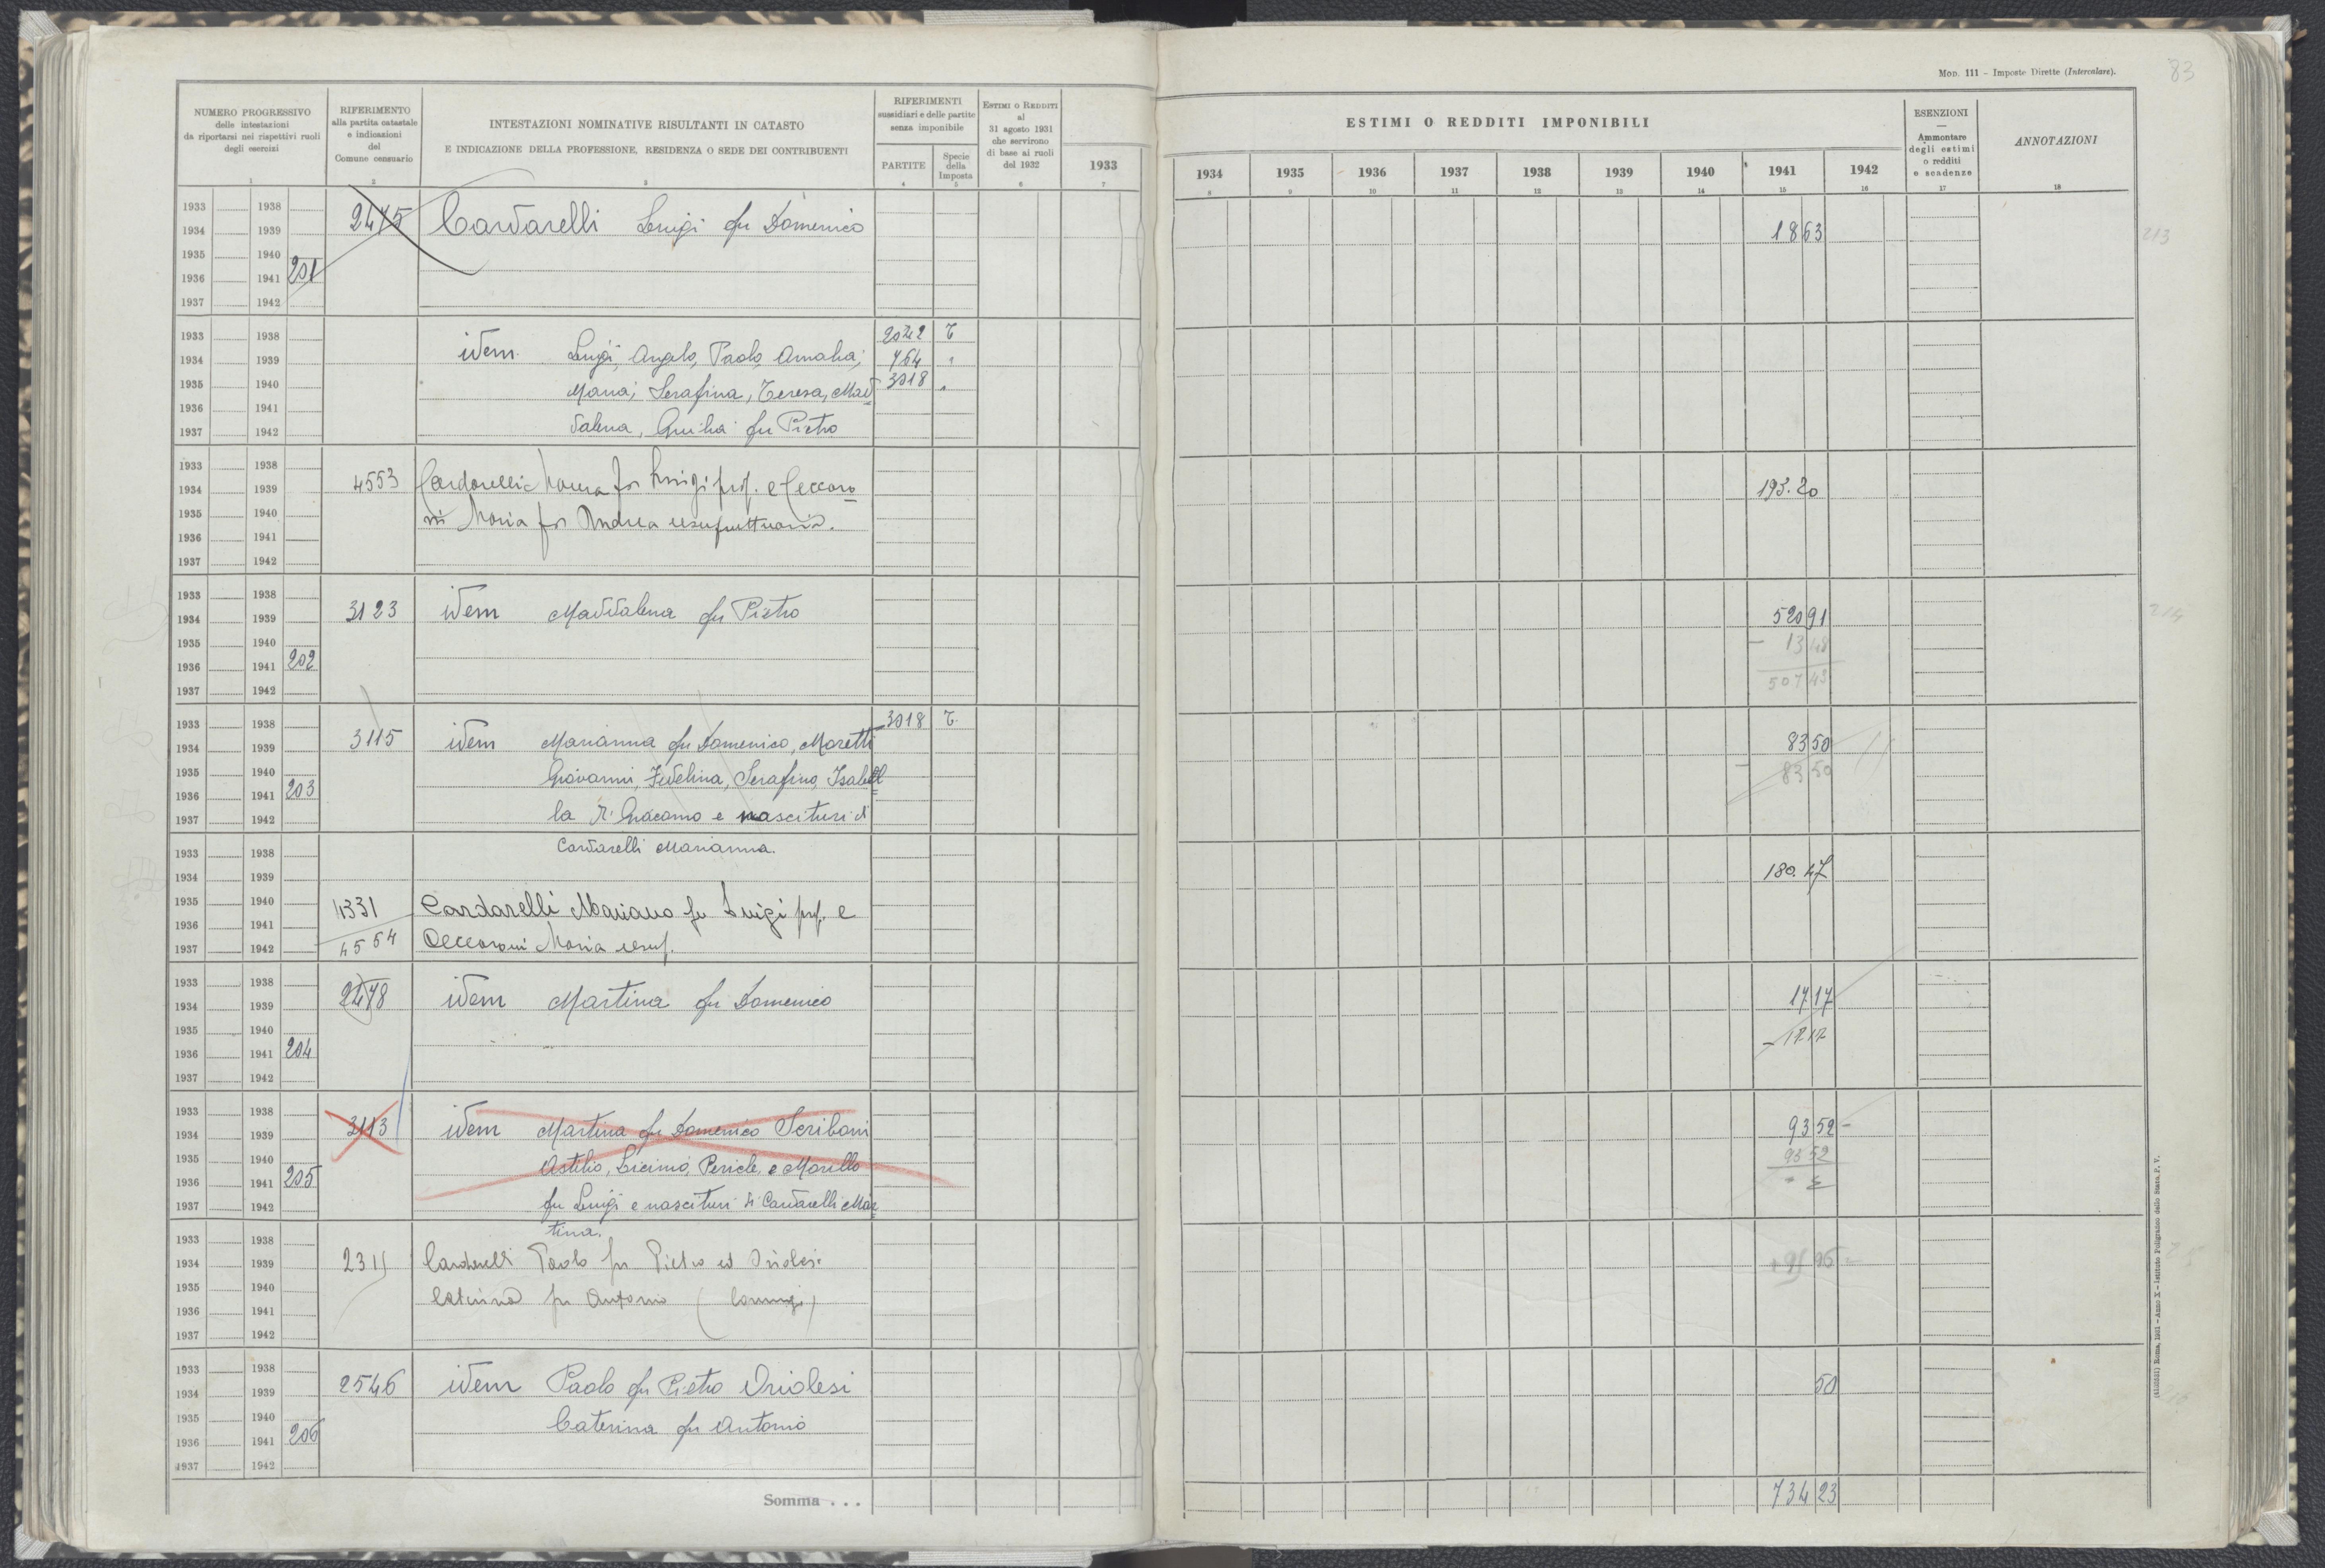 MOD. 111 - Imposte Dirette (Intercalare).
83
NUMERO PROGRESSIVO
delle intestazioni
da riportarsi nei rispettivi ruoli
degli esercizi
RIFERIMENTO
alla partita catastale
e indicazioni
del
Comune censuario
INTESTAZIONI NOMINATIVE RISULTANTI IN CATASTO
E INDICAZIONE DELLA PROFESSIONE, RESIDENZA O SEDE DEI CONTRIBUENTI
RIFERIMENTI
sussidiari e delle partite
senza imponibile
PARTITE
Specie
della
Imposta
ESTIMI O REDDITI
al
31 agosto 1931
che servirono
di base ai ruoli
del 1932
1933
ESTIMI O REDDITI IMPONIBILI
1934 1935 1936 1937 1938 1939 1940 1941 1942
ESENZIONI
Ammontare
degli estimi
o redditi
e scadenze
ANNOTAZIONI
1 2 3 4 5 6 7 8 9 10 11 12 13 14 15 16 17 18
1933 1938
1934 1939 2475 Cardarelli Luigi fu Domenico 18 63 213
1935 1940
1936 1941 201
1937 1942
1933 1938 2022 T
1934 1939 idem Luigi, Angelo, Paolo, Amalia, 764 "
1935 1940 Maria, Serafina, Teresa, Mad 3018 "
1936 1941
1937 1942 dalena, Giulia fu Pietro
1933 1938
1934 1939 4553 Cardarelli Maura fu Luigi prop. e Ceccaro 193.20
1935 1940 ni Maria fu Andrea usufruttuaria.
1936 1941
1937 1942
1933 1938
1934 1939 3123 idem Maddalena fu Pietro 520 91 214
1935 1940 - 13 48
1936 1941 202
1937 1942 507 43
1933 1938 3018 T.
1934 1939 3115 idem Marianna fu Domenico, Moretti 83 50
1935 1940 Giovanni, Fidelina, Serafino, Isabel - 83 50
1936 1941 203
1937 1942 la di Giacomo e nascituri di
1933 1938 Cardarelli Marianna.
1934 1939 180.47
1935 1940 4331 Cardarelli Mariano fu Luigi prop. e
1936 1941
1937 1942 4554 Ceccaroni Maria usuf.
1933 1938
1934 1939 2478 idem Martina fu Domenico 17 17
1935 1940 - 17.17
1936 1941 204
1937 1942
1933 1938
1934 1939 3113 idem Martina fu Domenico Scriboni 93 52 -
1935 1940 Astilio, Licinio, Pericle, e Morillo 93 52
1936 1941 205
1937 1942 fu Luigi e nascituri di Cardarelli Mar
1933 1938 tina.
1934 1939 Cardarelli Paolo fu Pietro ed Oriolesi
1935 1940 Caterina fu Antonio (coniugi)
1936 1941
1937 1942
1933 1938
1934 1939 2546 idem Paolo fu Pietro Oriolesi 50
1935 1940 Caterina fu Antonio
1936 1941 206
1937 1942
Somma . . . 734 23
(4103531) Roma, 1931 - Anno X - Istituto Poligrafico dello Stato P. V.